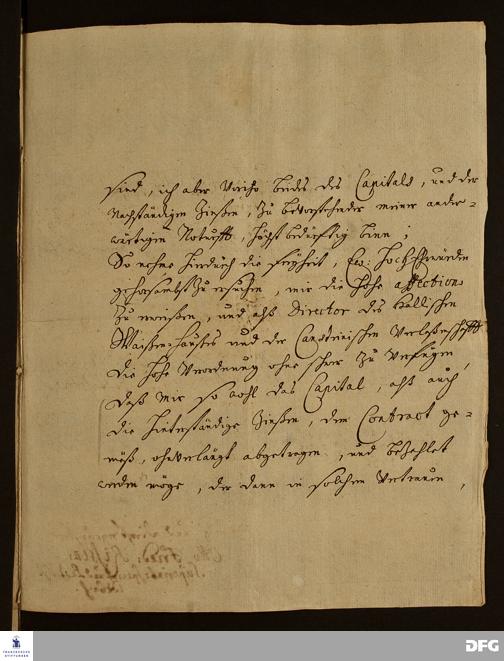 sind, ich aber dieses beides des Capitals, und der
Rückständigen Zinßen, zu bevorstehender meiner ander-
wärtigen Notdurfft, höchst bedürfftig binn;
So nehme hierdurch die Freyheit, Ew: Hochehrwürden
gehorsambst zu ersuchen, mir die hohe affection
zu erweisen, und alß Director des Hallischen
Waißen-Haußes und der Cansteinischen
die hohe Verordnung ohne zu verfügen,
daß mir so wohl das Capital, alß auch
die hinterständige Zinßen, dem Contract ge-
mäß, ohnverlängt abgetragen, und bezahlet
werden möge, der dann in solchem Vertrauen,
FRANCKESCHE
STIFTUNGEN
DFG